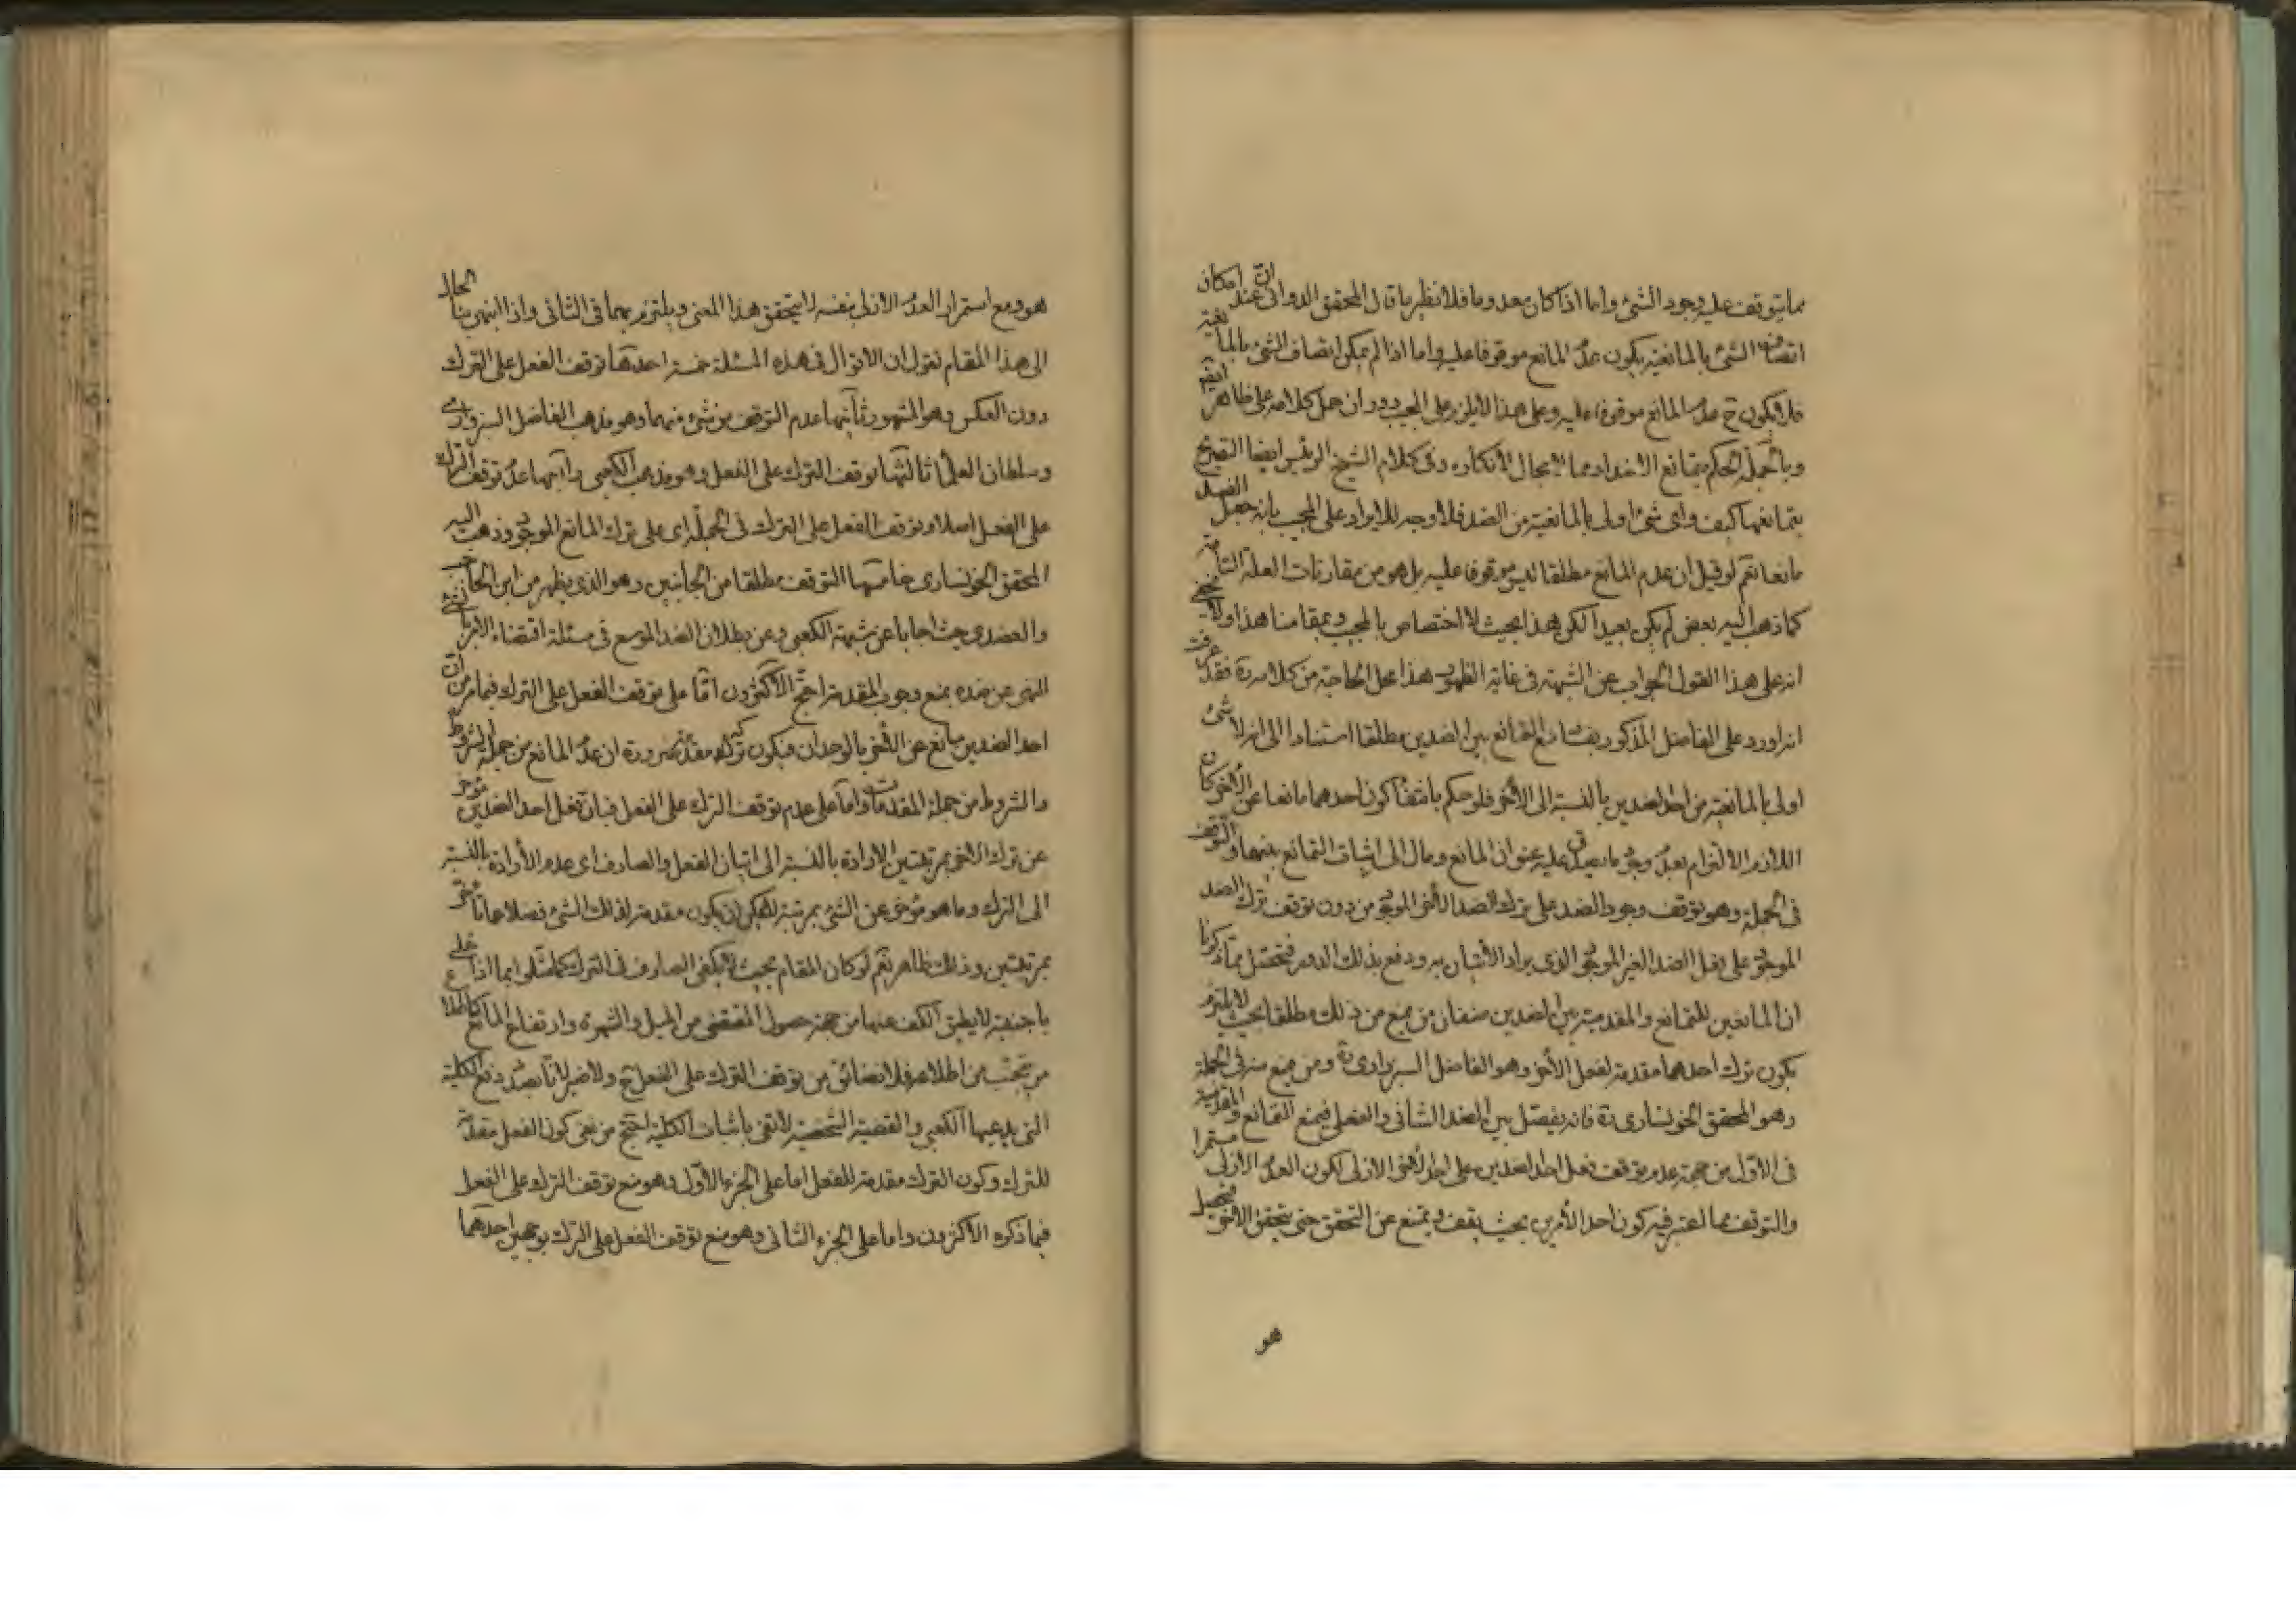 مما يتوقف عليه وجود الشئ واما اذا كان معدوما فلا نظير ما قال المحقق الدوانى ان عند امكان
اتصاف الشئ بالمانعية يكون عدم المانع موقوفا عليه واما اذا لم يمكن اتصاف الشئ بالمانعية
فلا يكون ح عدم المانع موقوفا عليه وعلى هذا لا يلزم على المجيب دور ان حمل كلامه على ظاهره
وبالجملة الحكم بتمانع الاضداد مما لا مجال لانكاره وفى كلام الشيخ الرئيس ايضا التصريح
بتمانعها كيف واى شئ اولى بالمانعية من الضد فلا وجه للايراد على المجيب بانه جعل الضد
مانعا نعم لو قيل ان عدم المانع مطلقا ليس موقوفا عليه بل هو من مقارنات العلة التامة
كما ذهب اليه بعض لم يكن بعيدا لكن هذا بحيث لا اختصاص بالمجيب وبمقامنا هذا ولا يخفى
انه على هذا القول الجواب عن الشبهة فى غاية الظهور هذا محل الحاجة من كلامه ره فقد عرفت
انه اورد على الفاضل المذكور بمنع التمانع بين الضدين مطلقا استنادا الى انه لا شئ
اولى بالمانعية من احد الضدين بالنسبة الى الآخر فلو حكم بانتفاء كون احدهما مانعا عن الآخر كان
اللازم الالتزام بعدم وجود ما يصدق عليه عنوان المانع ومال الى اثبات التمانع بينهما والتوقف
فى الجملة وهو توقف وجود الضد على ترك الضد الآخر الموجود من دون توقف ترك الضد
الموجود على فعل الضد الغير الموجود الذى يراد الاتيان به ودفع بذلك الدور فتحصل مما ذكرنا
ان المانعين للتمانع والمقدمية بين الضدين صنفان من منع من ذلك مطلقا بحيث لا يلتزم
بكون ترك احدهما مقدمة لفعل الآخر وهو الفاضل السبزوارى ره ومن منع منه فى الجملة
وهو المحقق الخونسارى ره فانه يفصل بين الضد الشانى والفعلى فيمنع التمانع والمقدمية
فى الاول من جهة عدم توقف فعل احد الضدين على ترك الآخر الازلى لكون العدم الازلى مستمرا
والتوقف مما اعتبر فيه كون احد الامرين بحيث يقف ويمتنع عن التحقق حتى يتحقق الآخر فيحصل
هو
هو ومع استمرار العدم الازلى بنفسه لا يتحقق هذا المعنى ويلتزم بهما فى الثانى واذا انتهى بنا الحال
الى هذا المقام نقول ان الاقوال فى هذه المسئلة خمسة احدها توقف الفعل على الترك
دون العكس وهو المشهور ثانيها عدم التوقف من شئ منهما وهو مذهب الفاضل السبزوارى
وسلطان العلماء ثالثها توقف الترك على الفعل وهو مذهب الكعبى رابعها عدم توقف الترك
على الفعل اصلا وتوقف الفعل على الترك فى الجملة اى على ترك المانع الموجود وذهب اليه
المحقق الخونسارى خامسها التوقف مطلقا من الجانبين وهو الذى يظهر من ابن الحاجب
والعضدى حيث اجابا عن شبهة الكعبى وعن بطلان الضد الموسع فى مسئلة اقتضاء الامر بالشئ
النهى عن ضده بمنع وجوب المقدمة احتج الاكثرون اما على توقف الفعل على الترك فبما مر من ان
احد الضدين مانع عن الآخر بالوجدان فيكون تركه مقدمة ضرورة ان عدم المانع من جملة الشروط
والشروط من جملة المقدمات واما على عدم توقف الترك على الفعل فبان فعل احد الضدين مؤخر
عن ترك الآخر بمرتبتين الارادة بالنسبة الى اتيان الفعل والصارف اى عدم الارادة بالنسبة
الى الترك وما هو مؤخر عن الشئ بمرتبة لا يمكن ان يكون مقدمة لذلك الشئ فضلا عما تاخر
بمرتبتين وذلك ظاهر نعم لو كان المقام بحيث لا يكفى الصارف فى الترك كما مثلوا بما اذا خلى
باجنبية لا يطيق الكف عنها من جهة حصول المقتضى من الميل والشهوة وارتفاع المانع
من اطلاعه فلا نضائق من توقف الترك على الفعل ح ولا ضير لانا بصدد دفع الكلية
التى يدعيها الكعبى والقضية الشخصية لا تفى باثبات الكلية احتج من نفى كون الفعل مقدمة
للترك وكون الترك مقدمة للفعل اما على الجزء الاول وهو منع توقف الترك على الفعل
فبما ذكره الاكثرون واما على الجزء الثانى وهو منع توقف الفعل على الترك بوجهين احدهما